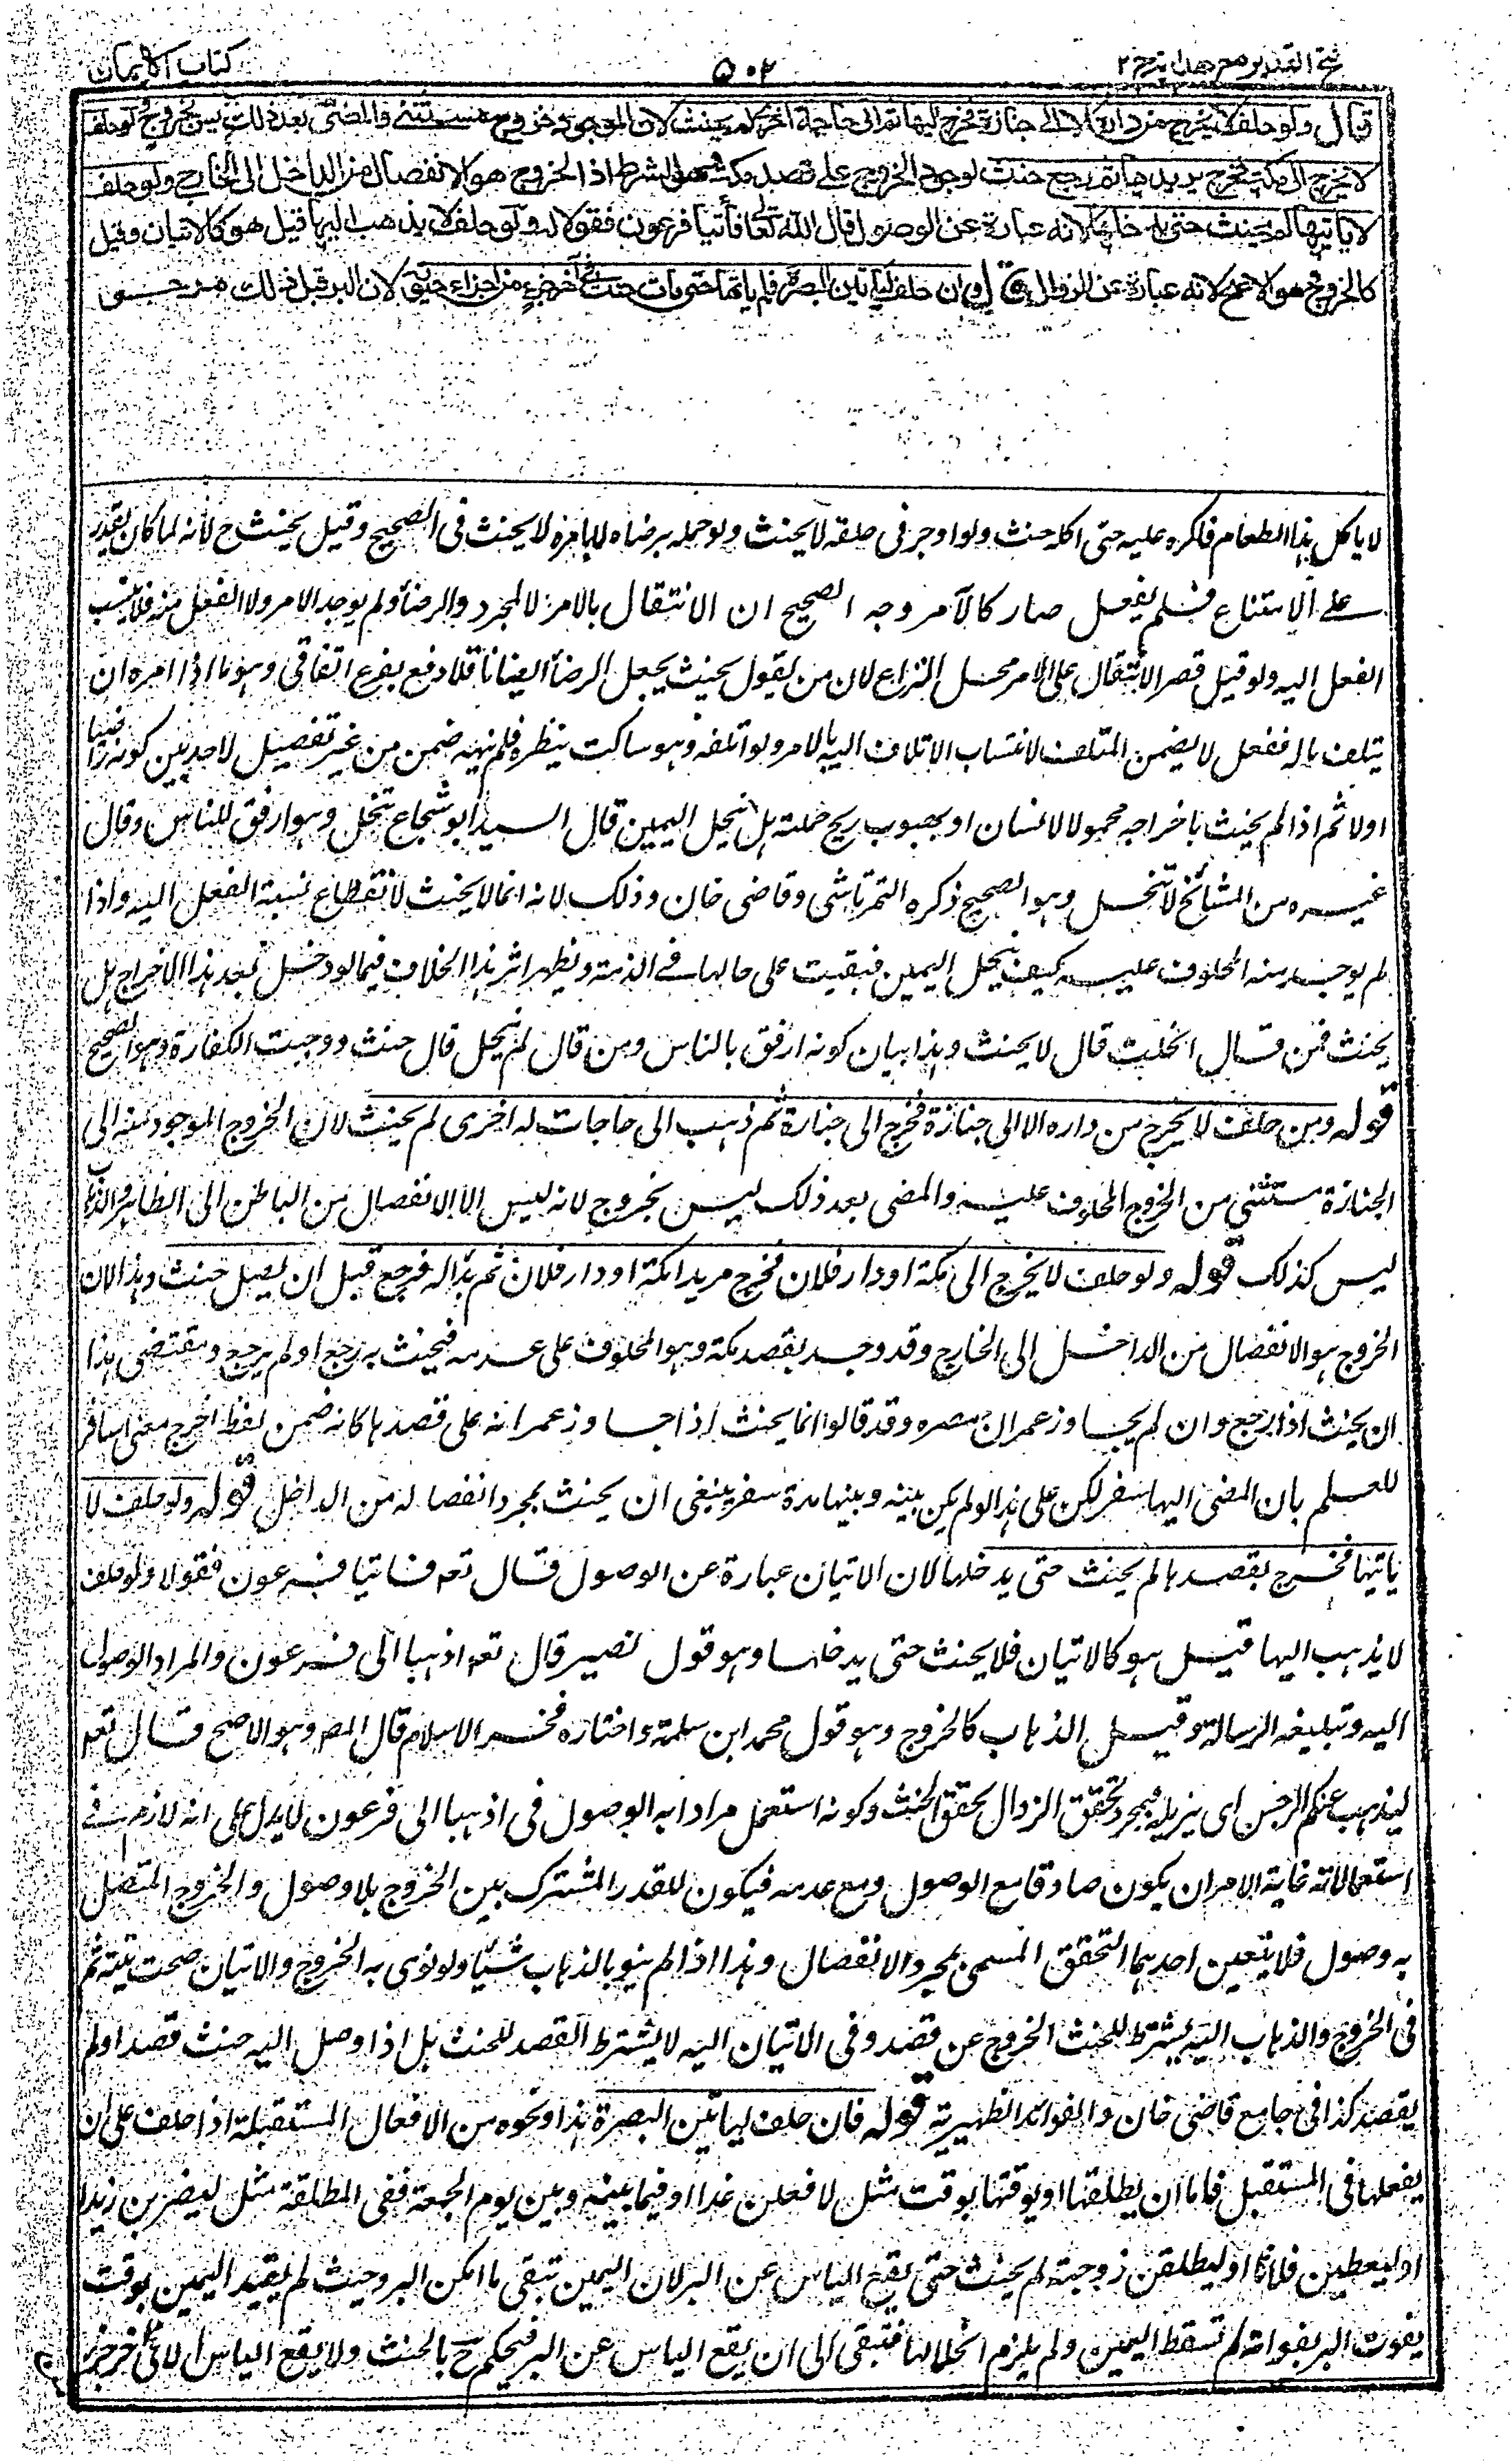 فتح القدير مع هداية ج ٢
٥٠٢
كتاب الايمان
قال ولو حلف لا يخرج من داره الا الى جنازة فخرج اليها ثم اتى حاجة اخرى لم يحنث لان الموجود خروج مستثنى والمضى بعد ذلك ليس بخروج ولو حلف
لا يخرج الى مكة فخرج يريدها ثم رجع حنث لوجود الخروج على قصد مكة وهو الشرط اذ الخروج هو الانفصال من الداخل الى الخارج ولو حلف
لا ياتيها لم يحنث حتى يدخلها لانه عبارة عن الوصول قال الله تعالى فأتيا فرعون فقولا له ولو حلف لا يذهب اليها قيل هو كالاتيان وقيل
كالخروج وهو الاصح لانه عبارة عن الزوال قال وان حلف لياتين البصرة فلم ياتها حتى مات حنث في آخر جزء من اجزاء حيوته لان البر قبل ذلك مرجو
لا ياكل هذا الطعام فاكره عليه حتى اكله حنث ولو اوجر فى حلقه لا يحنث ولو حمله برضاه لا بامره لا يحنث فى الصحيح وقيل يحنث ح لانه لما كان يقدر
على الامتناع فلم يفعل صار كالآمر وجه الصحيح ان الانتقال بالامر لا بمجرد الرضأ ولم يوجد الامر ولا الفعل منه فلا ينسب
الفعل اليه ولو قيل قصر الانتقال على الامر محل النزاع لان من يقول يحنث يجعل الرضأ ايضا ناقلا دفع بفرع اتفاقى وهو ما اذا امره ان
يتلف ماله ففعل لا يضمن المتلف لانتساب الاتلاف اليه بالامر ولو اتلفه وهو ساكت ينظره فلم ينهه ضمن من غير تفصيل لاحد بين كونه راضيا
اولا ثم اذا لم يحنث باخراجه محمولا لانسان او بهبوب ريح حملته هل تنحل اليمين قال السيد ابو شجاع تنحل وهو ارفق للناس وقال
غيره من المشائخ لا تنحل وهو الصحيح ذكره التمرتاشى وقاضى خان وذلك لانه انما لا يحنث لانقطاع نسبة الفعل اليه واذا
لم يوجد منه المحلوف عليه كيف تنحل اليمين فبقيت على حالها فى الذمة ويظهر اثر هذا الخلاف فيما لو دخل بعد هذا الاخراج هل
يحنث فمن قال انحلت قال لا يحنث وهذا بيان كونه ارفق بالناس ومن قال لم تنحل قال حنث ووجبت الكفارة وهو الصحيح
قوله ومن حلف لا يخرج من داره الا الى جنازة فخرج الى جنازة ثم ذهب الى حاجات له اخرى لم يحنث لان الخروج الموجود منه الى
الجنازة مستثنى من الخروج المحلوف عليه والمضى بعد ذلك ليس بخروج لانه ليس الا الانفصال من الباطن الى الظاهر والذهاب
ليس كذلك قوله ولو حلف لا يخرج الى مكة او دار فلان فخرج مريدا مكة او دار فلان ثم بدا له فرجع قبل ان يصل حنث وهذا لان
الخروج هو الانفصال من الداخل الى الخارج وقد وجد بقصد مكة وهو المحلوف على عدمه فيحنث به رجع او لم يرجع ومقتضى هذا
ان يحنث اذا رجع وان لم يجاوز عمران مصره وقد قالوا انما يحنث اذا جاوز عمرانه على قصدها كانه ضمن لفظ اخرج معنى اسافر
للعلم بان المضى اليها سفر لكن على هذا لو لم يكن بينه وبينها مدة سفر ينبغى ان يحنث بمجرد انفصاله من الداخل قوله ولو حلف لا
ياتيها فخرج بقصدها لم يحنث حتى يدخلها لان الاتيان عبارة عن الوصول قال تعه فاتيا فرعون فقولا ولو حلف
لا يذهب اليها قيل هو كالاتيان فلا يحنث حتى يدخلها وهو قول نصير قال تعه اذهبا الى فرعون والمراد الوصول
اليه وتبليغه الرسالة وقيل الذهاب كالخروج وهو قول محمد ابن سلمة واختاره فخر الاسلام قال المصـ وهو الاصح قال تعه
ليذهب عنكم الرجس اى يزيله فبمجرد تحقق الزوال يتحقق الحنث وكونه استعمل مرادا به الوصول فى اذهبا الى فرعون لا يدل على انه لازم فى
استعمالاته غاية الامر ان يكون صادقا مع الوصول ومع عدمه فيكون للقدر المشترك بين الخروج بلا وصول والخروج المتصل
به وصول فلا يتعين احدهما التحقق المسمى بمجرد الانفصال وهذا اذا لم ينو بالذهاب شيئا ولو نوى به الخروج والاتيان صحت نيته ثم
فى الخروج والذهاب اليه يشترط للحنث الخروج عن قصد وفى الاتيان اليه لا يشترط القصد للحنث بل اذا وصل اليه حنث قصد او لم
يقصد كذا فى جامع قاضى خان والفوائد الظهيرية قوله فان حلف لياتين البصرة هذا ونحوه من الافعال المستقبلة اذا حلف على ان
يفعلها فى المستقبل فاما ان يطلقها او يوقتها بوقت مثل لافعلن غدا او فيما بينه وبين يوم الجمعة ففى المطلقة مثل ليضربن زيدا
او ليعطين فلانا او ليطلقن زوجته لم يحنث حتى يقع الياس عن البر لان اليمين تبقى ما امكن البر وحيث لم يقيد اليمين بوقت
يفوت البر بفواته لم تسقط اليمين ولم يلزم انحلالها فتبقى الى ان يقع الياس عن البر فيحكم ح بالحنث ولا يقع الياس الا فى آخر جزء